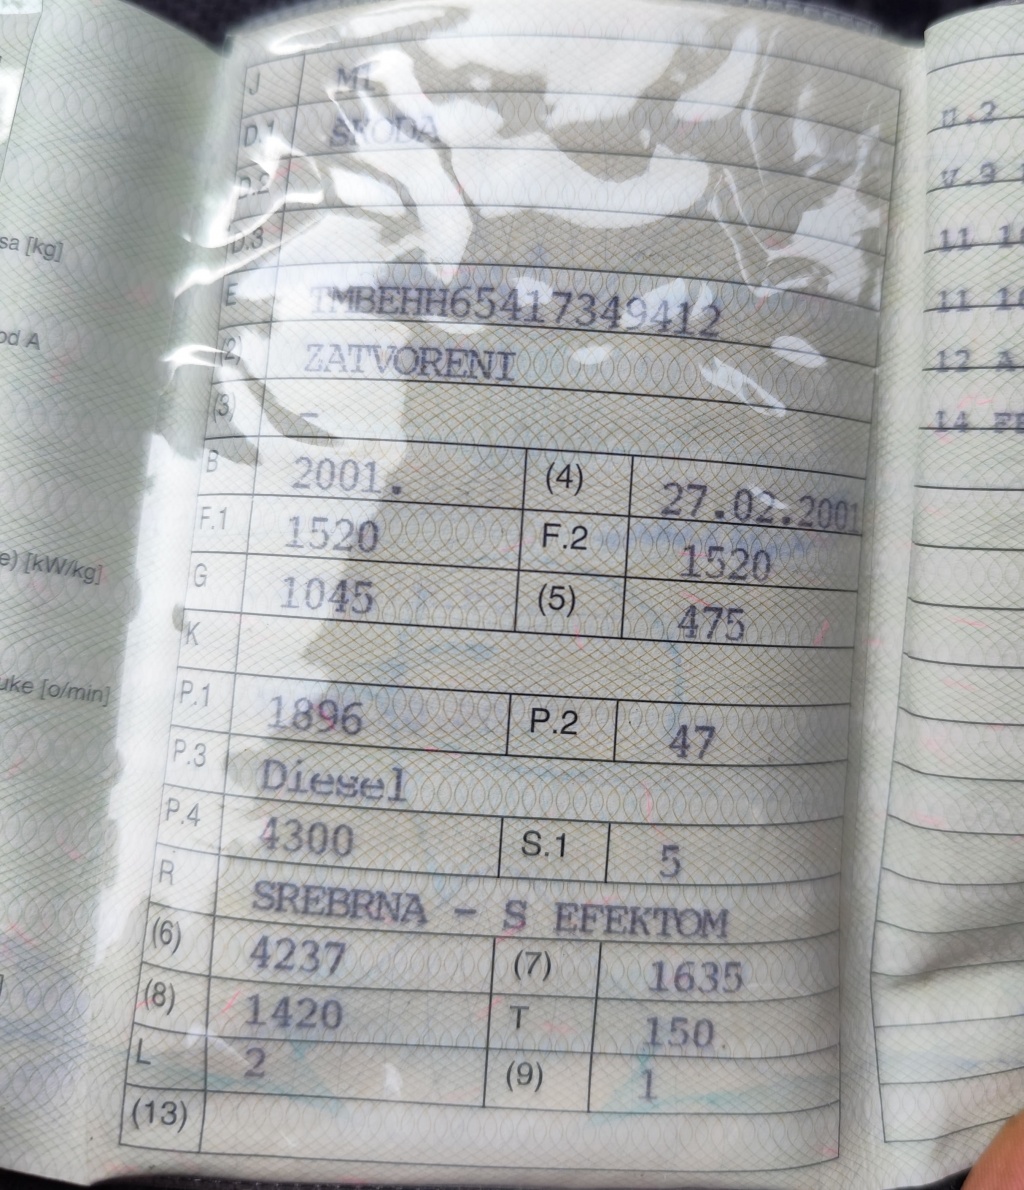 sa [kg]
od A
e) [kW/kg]
uke [o/min]
J M1
D.1 ŠKODA
D.2
D.3
E TMBEHH65417349412
(2) ZATVORENI
(3) –
B 2001. (4) 27.02.2001
F.1 1520 F.2 1520
G 1045 (5) 475
K
P.1 1896 P.2 47
P.3 Diesel
P.4 4300 S.1 5
R SREBRNA - S EFEKTOM
(6) 4237 (7) 1635
(8) 1420 T 150.
L 2 (9) 1
(13)
11 1
11 1
12 A
14